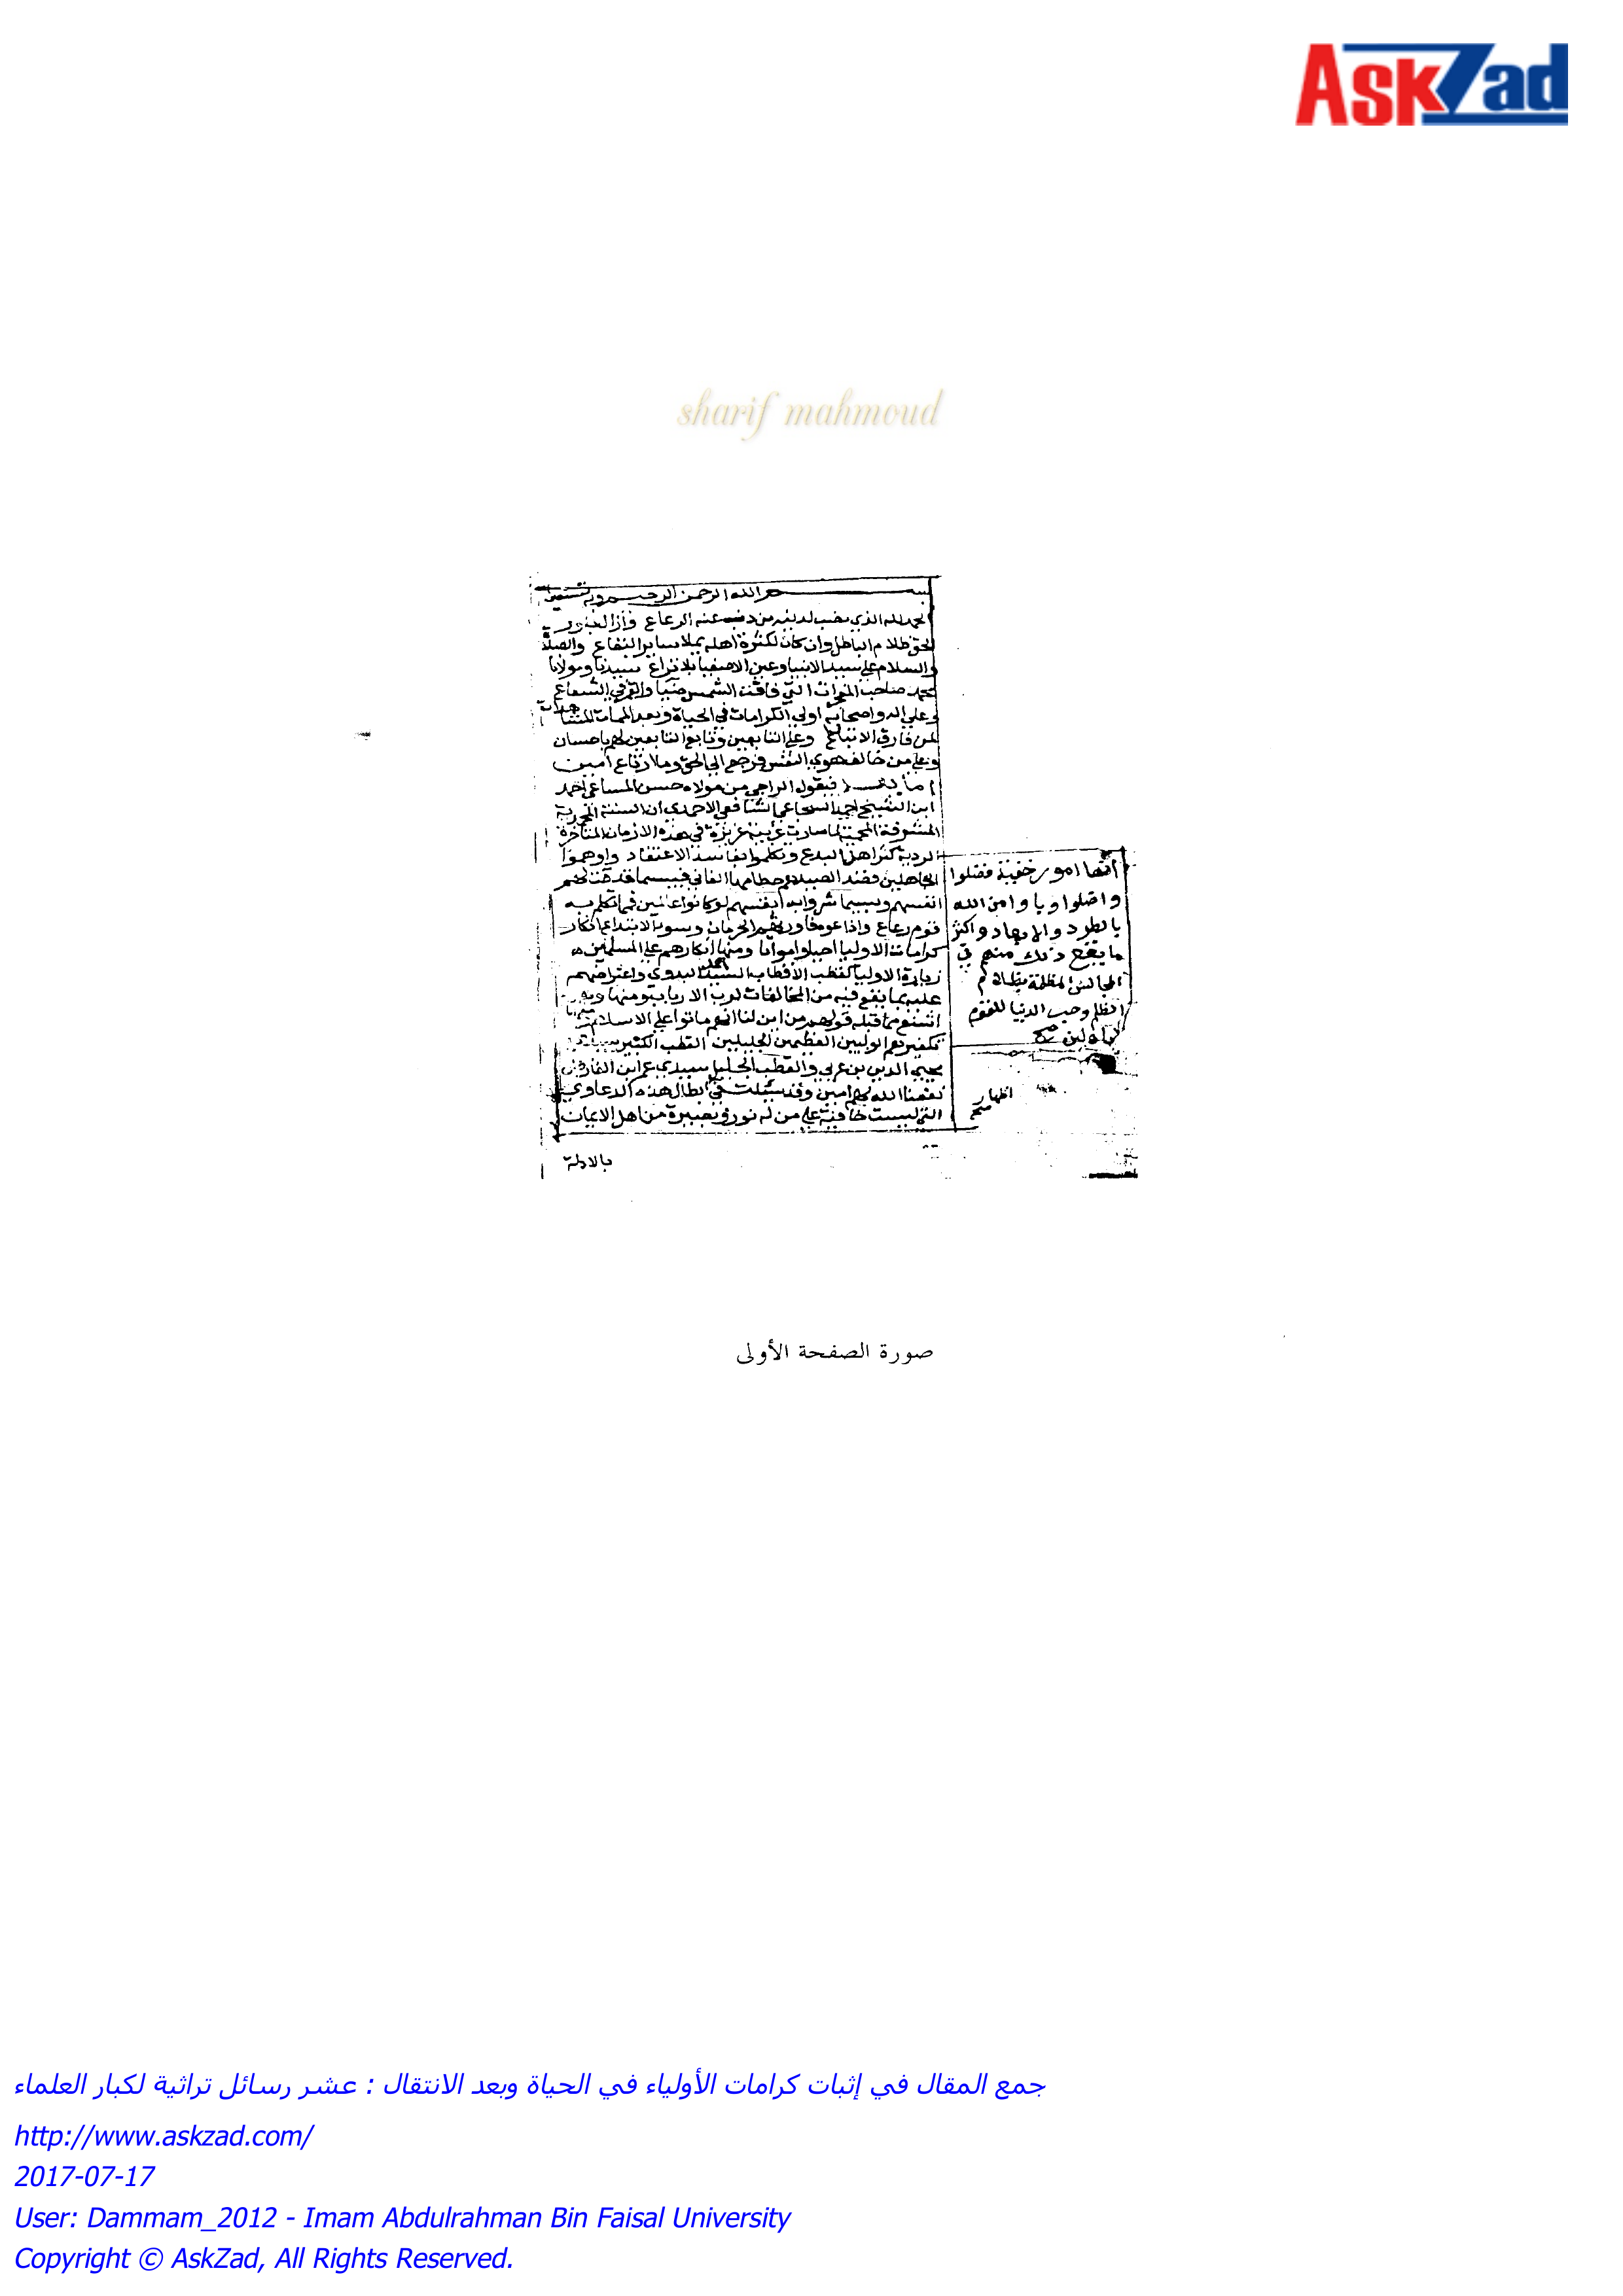 AskZad
sharif mahmoud
بسم الله الرحمن الرحيم وبه نستعين
الحمد لله الذي نصب لدينه من دفع عنه الرعاع وأزال بنور
الحق ظلام الباطل وان كان لكثرة اهله بملا ساير البقاع والصلاة
والسلام على سيد الانبيا وعين الاصفيا بلا نزاع سيدنا ومولانا
محمد صاحب المعجزات التي فاقت الشمس ضيا والقمر في الشعاع
وعلى اله واصحابه اولي الكرامات في الحياة وبعد الممات
لمن فارق الابتداع وعلى التابعين وتابع التابعين لهم باحسان
وعلى من خالف هوى النفس فرجع الى الحق وملا رتاع امين
اما بعد فيقول الراجي من مولاه حسن المساعي احمد
ابن الشيخ احمد السجاعي الشافعي الاحمدي ان السنة المحمدية
المشرفة المحمية لما صارت غريبة عزيزة في هذه الازمان المتاخرة
الردية كثر اهل البدع وتكلموا بفاسد الاعتقاد واوهموا
الجاهلين قصد الصيد حطامها الفاني فبيسما قدمت لهم
انفسهم وبيسما شروا به انفسهم لو كانوا عالمين فما تكلم به
قوم رعاع واذاعوه فاورثهم الحرمان وسوء الابتداع انكار
كرامات الاوليا احياء وامواتا ومنها انكارهم على المسلمين
زيارة الاوليا كقطب الاقطاب السيد احمد البدوي واعتراضهم
عليه بما يقع فيه من المخالفات لرب الارباب ومنها وهو
اشنع مما قبله قولهم من اين لنا انهم ماتوا على الاسلام
تكفيرهم الوليين العظيمين الجليلين القطب الكبير سيدي
محيي الدين بن عربي والقطب الجليل سيدي عمر ابن الفارض
نفعنا الله بهم امين وقد سيلت في ابطال هذه الدعاوي
التي ليست خافية على من له نور وبصيرة من اهل الايمان
بالادلة
انها امور خفية فضلوا
واضلوا وباوا من الله
بالطرد والابعاد واكثر
ما يقع ذلك منهم في
المجالس المظلمة بظلام
الظلم وحب الدنيا للقوم
صح
اظهار
صورة الصفحة الأولى
جمع المقال في إثبات كرامات الأولياء في الحياة وبعد الانتقال : عشر رسائل تراثية لكبار العلماء
http://www.askzad.com/
2017-07-17
User: Dammam_2012 - Imam Abdulrahman Bin Faisal University
Copyright © AskZad, All Rights Reserved.